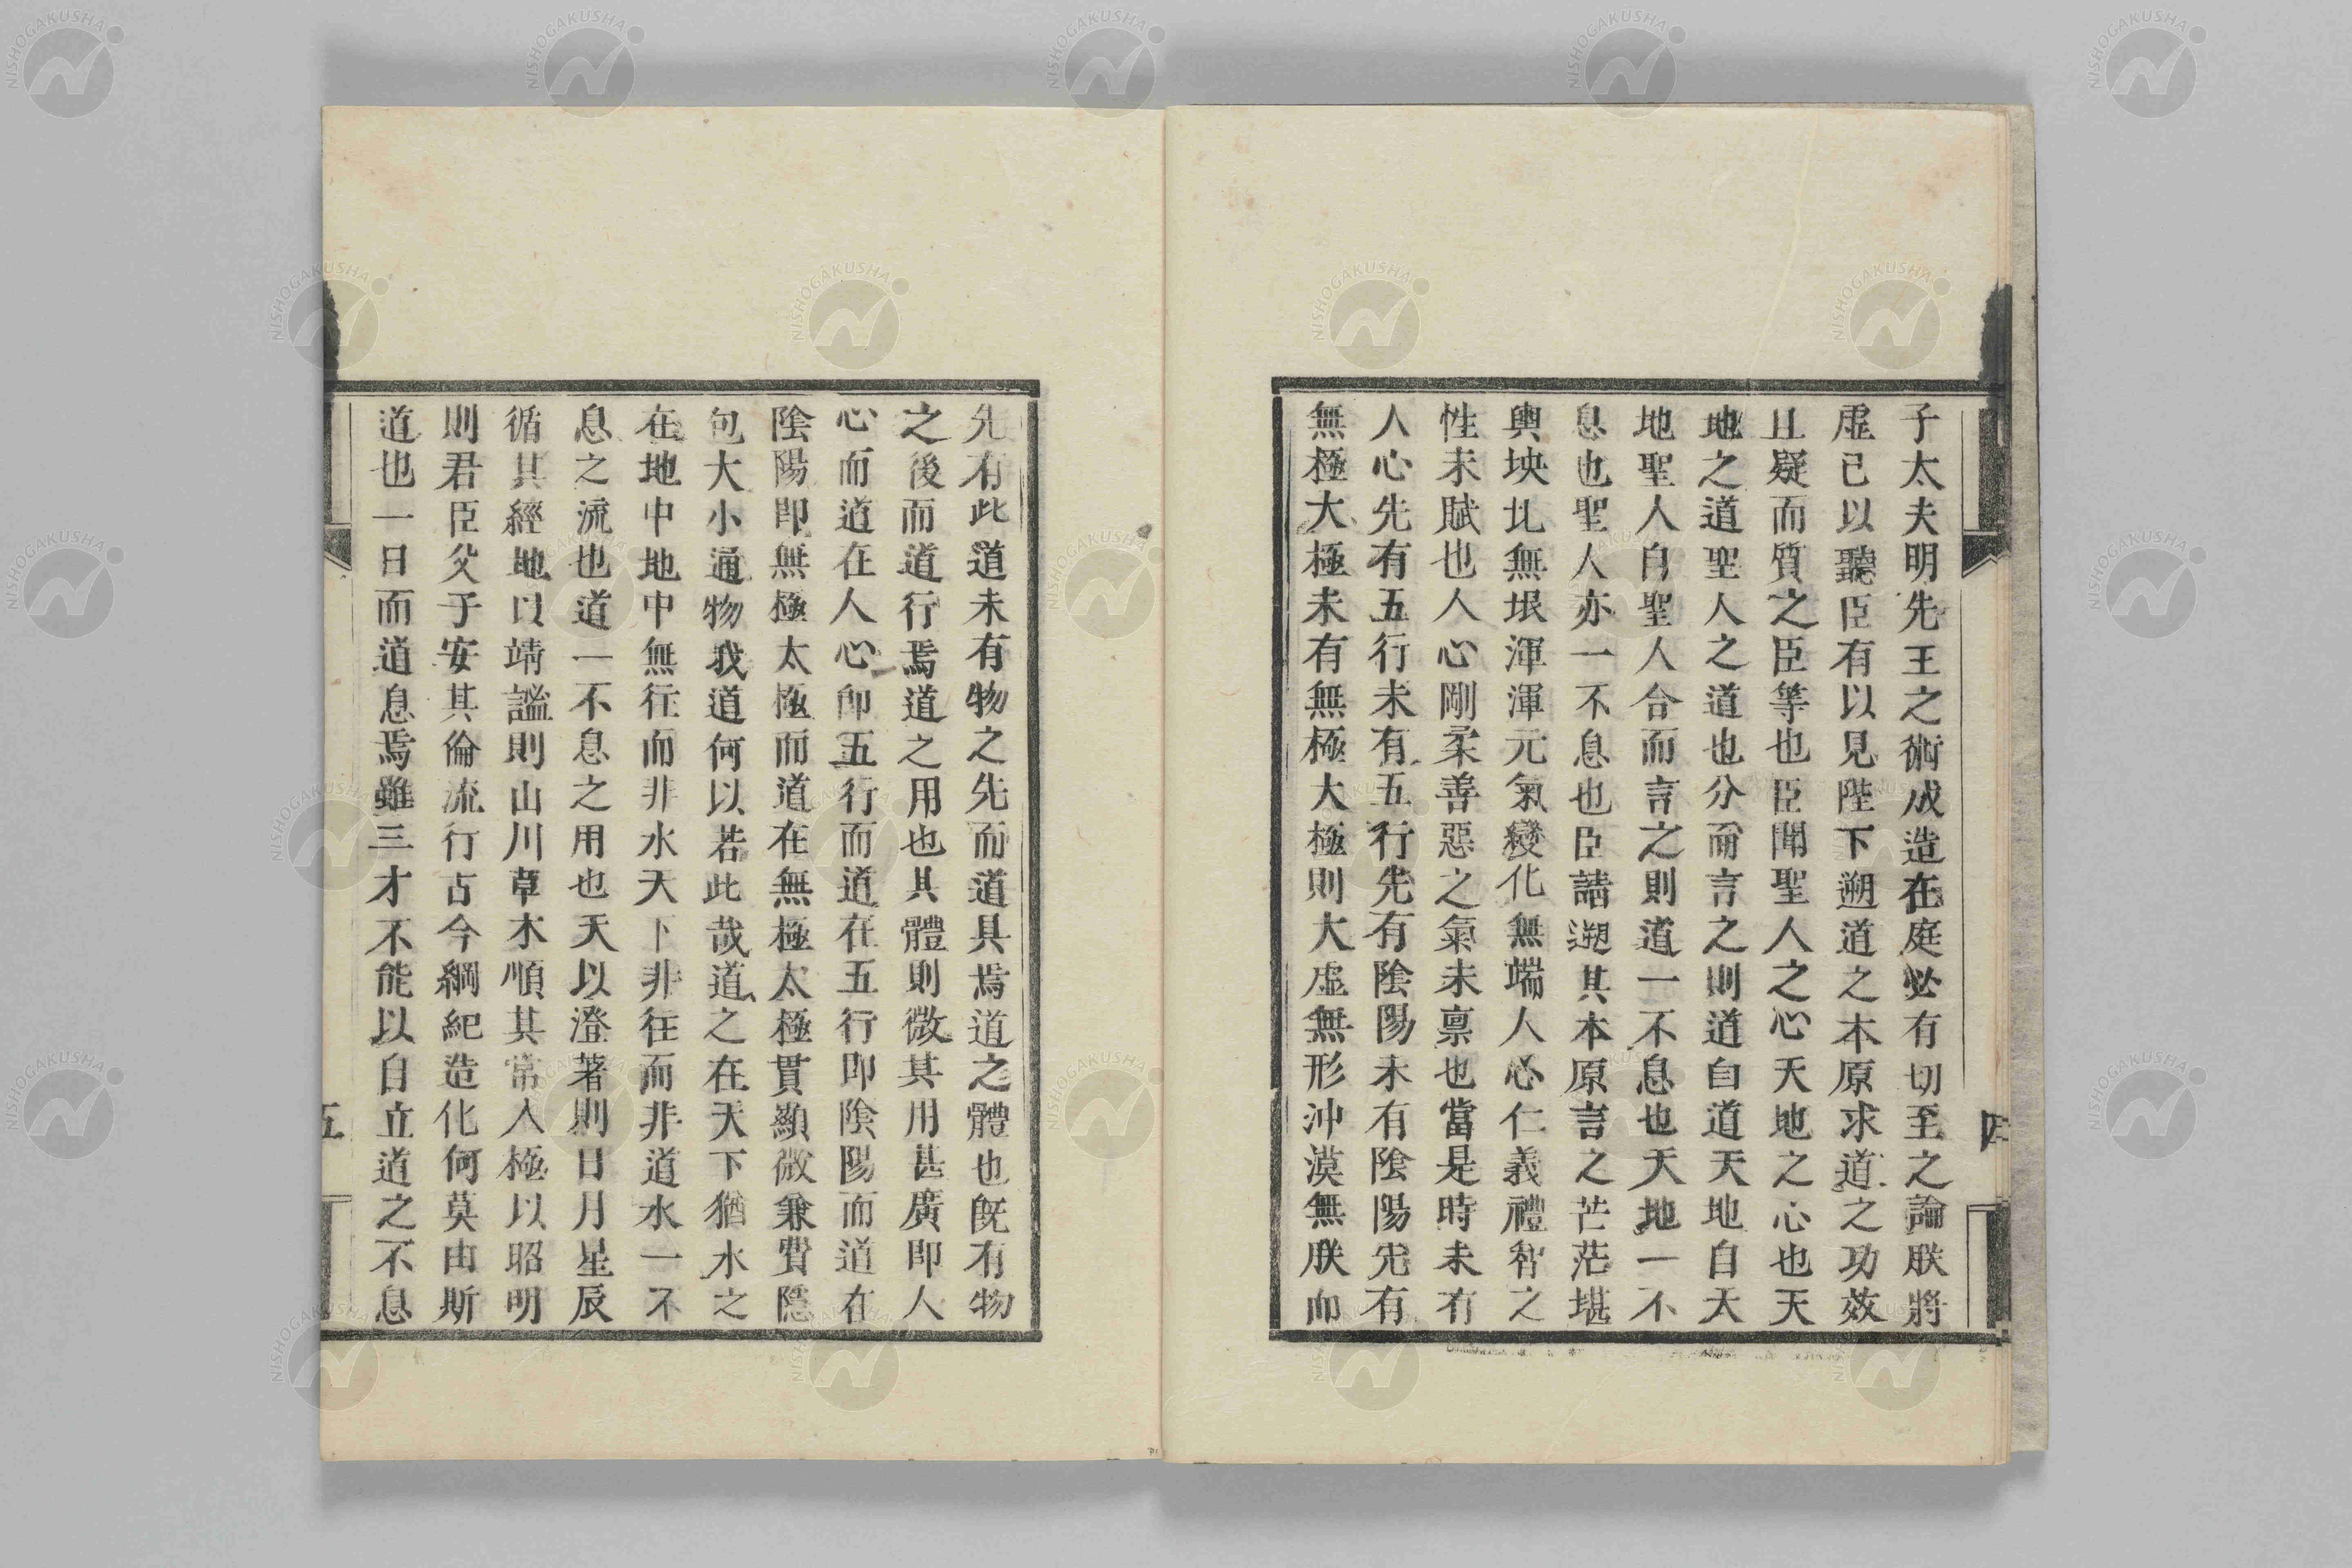 子太夫明先王之術成造在庭必有切至之論朕將
虛己以聽臣有以見陛下遡道之本原求道之功效
且疑而質之臣等也臣聞聖人之心天地之心也天
地之道聖人之道也分而言之則道自道天地自天
地聖人自聖人合而言之則道一不息也天地一不
息也聖人亦一不息也臣請遡其本原言之茫茫堪
輿坱圠無垠渾渾元氣變化無端人心仁義禮智之
性未賦也人心剛柔善惡之氣未禀也當是時未有
人心先有五行未有五行先有陰陽未有陰陽先有
無極太極未有無極太極則太虛無形沖漠無朕而
四
先有此道未有物之先而道具焉道之體也既有物
之後而道行焉道之用也其體則微其用甚廣即人
心而道在人心即五行而道在五行即陰陽而道在
陰陽即無極太極而道在無極太極貫顯微兼費隱
包大小通物我道何以若此哉道之在天下猶水之
在地中地中無往而非水天下非往而非道水一不
息之流也道一不息之用也天以澄著則日月星辰
循其經地以靖謐則山川草木順其常人極以昭明
則君臣父子安其倫流行古今綱紀造化何莫由斯
道也一日而道息焉雖三才不能以自立道之不息
五
NISHOGAKUSHA